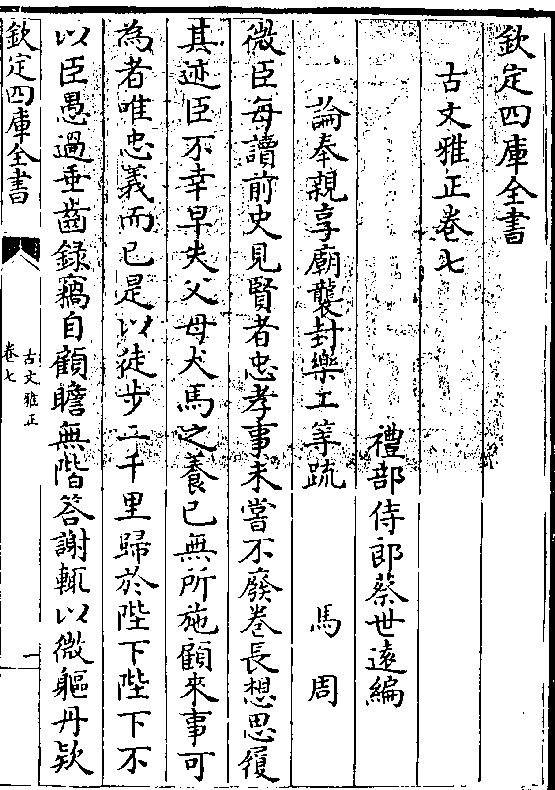 欽定四庫全書
古文雅正卷七
禮部侍郎蔡世遠編
論奉親享廟襲封樂工等疏 馬周
微臣每讀前史見賢者忠孝事未嘗不廢卷長想思履
其迹臣不幸早失父母犬馬之養已無所施顧來事可
為者唯忠義而已是以徒步二千里歸於陛下陛下不
以臣愚過垂齒錄竊自顧瞻無階答謝輒以微軀丹欵
欽定四庫全書
古文雅正
卷七
一